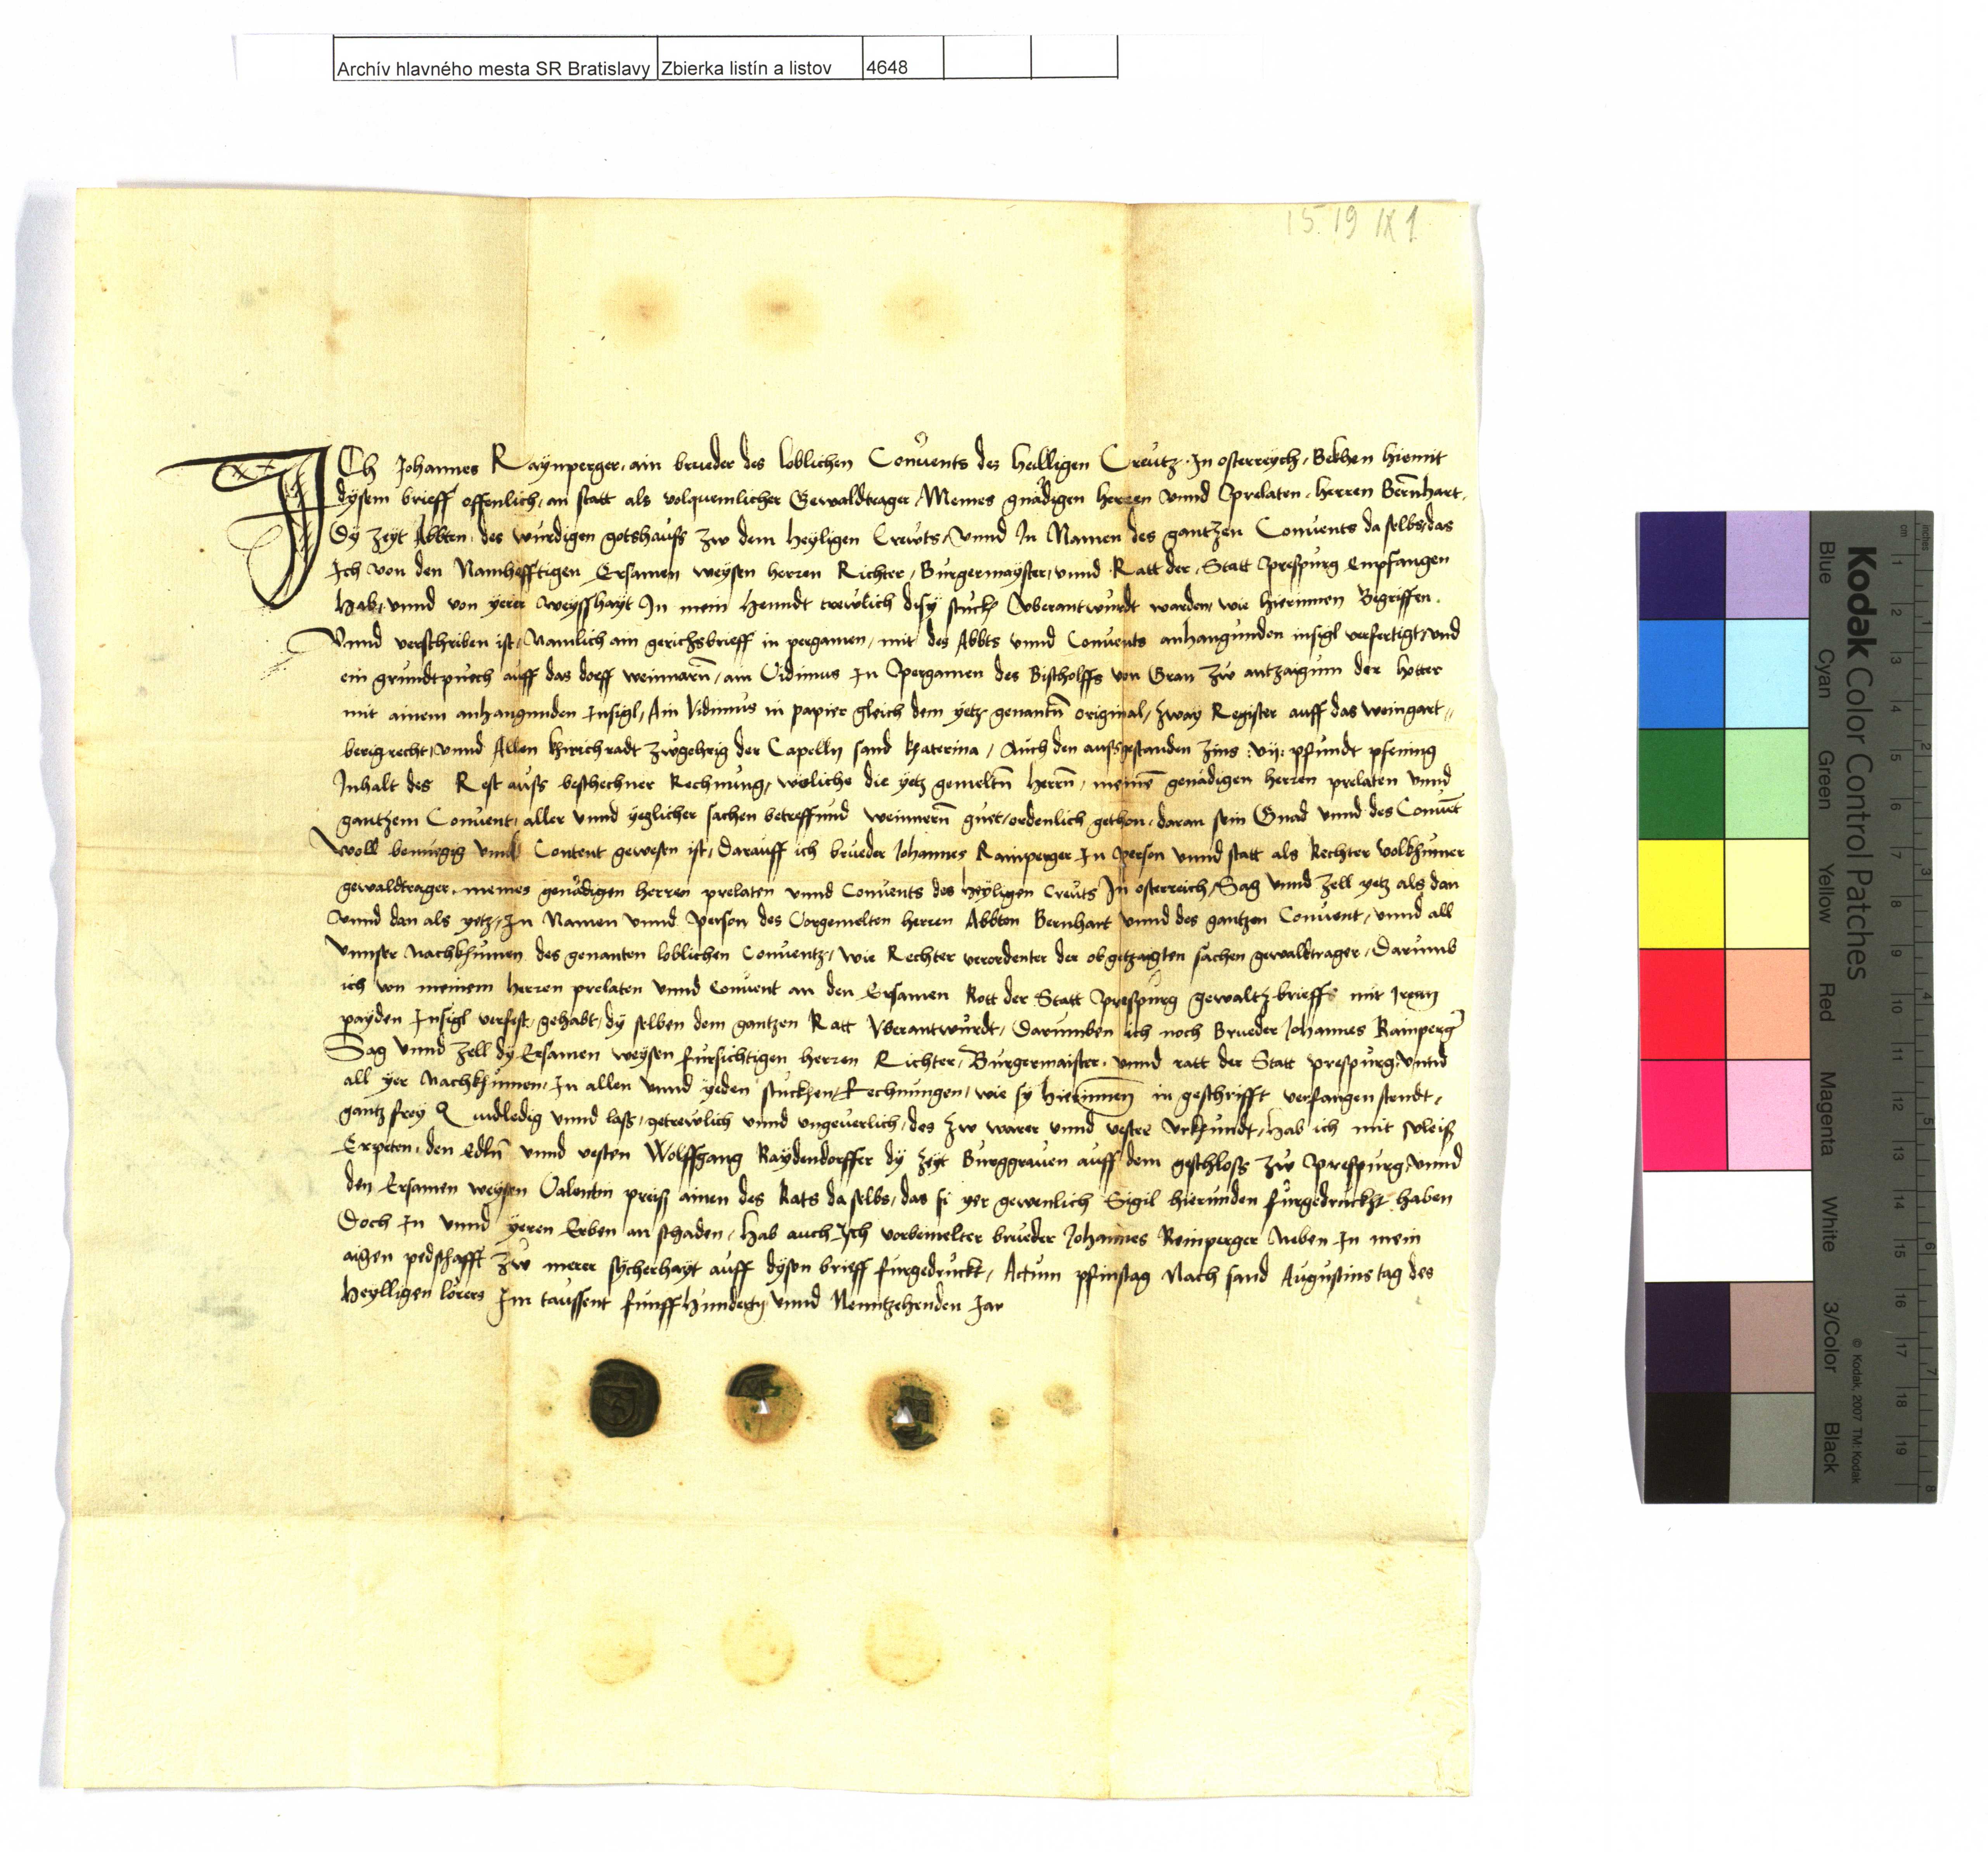 Archív hlavného mesta SR Bratislavy Zbierka listín a listov 4648
15.19 IX 1
ICh Johannes Raÿnperger, ain brueder des loblichen Conuents des heilligen Creutz In osterreÿch, Bekhen hiemit
dÿsem brieff offenlich, an statt als volquemlicher Gewaldtrager Meines gnädigen herren vnnd Prelaten, herren Bernhart,
Dÿ zeÿt Abbten, des wurdigen gotshaufs zw dem heÿligen Crewts, vnnd In Namen des gantzen Conuents da selbs, das
Ich von den Namhefftigen Ersamen weÿsen herren Richter, Burgermaÿster, vnnd Ratt der, Statt Prespurg empfangen
hab, vnnd von ÿerer weÿsshaÿt In mein henndt trewlich disÿ stuckh vberantwurdt warden, wie hierinnen Begriffen.
Vnnd verschriben ist, Namlich ain gerichsbrieff in pergamen, mit des Abbts vnnd Conuents anhangunden insigl verfertigt, vnd
ein grundtpuech auff das dorff weinnarn, ain Vidimus In Pergamen des Bischolffs von Gran zw antzaigum der hotter
mit ainem anhangunden Insigl, Ain Vidimus in papier gleich dem ÿetz genantn original, zwaÿ Register auff das weingart„
berigrecht, vnnd Allen khirichradt zwgehrig der Capelln sand Katerina, Auch den aufsgestanden zins : vij : pfundt pfening
Inhalt des Rest aufs beschechner Rechnung, wöliche die ÿetz gemeltn herrn, meinē genädigen herren prelaten vnnd
gantzem Conuent, aller vnnd ÿeglicher sachen betreffund weinnern guet, ordenlich gethon, daran sein Gnad vnnd des Conuēt
woll benuegig vnnd Content gewesen ist, Darauff ich brueder Johannes Rainperger In person vnnd statt als Rechter volkhumer
gewaldtrager, meines genädigen herren prelaten vnnd Conuents des heÿligen Creuts In osterreich, Sag vnnd zell ÿetz als dan
vnnd dan als ÿetz, In Namen vnnd person des Vorgemelten herren Abbten Bernhart vnnd des gantzen Conuent, vnnd all
vnnser nachkhumen des genanten loblichen Conuentz, wie Rechter verordenter der obgetzaigten sachen gewaldtrager, Darumb
ich von meinem herren prelaten vnnd Conuent an den Ersamen Rott der Statt Prespurg gewaltz brieffs mit Irenn
paÿden Insigl verfest, gehabt, dÿ selben dem gantzen Ratt Vberantwurdt, Darumben ich noch Brueder Johannes Rainperg
Sag vnnd zell dÿ Ersamen weÿsen fursichtigen herren Richter, Burgermaister, vnnd ratt der Statt prespurg, vnnd
all ÿer nachkhumen, In allen vnnd ÿeden stuckhen, Rechnungen, wie sÿ hierinnen in geschrifft verfangen stendt,
gantz freÿ Quidledig vnnd lass, getrewlich vnnd vngeuerlich, des zw warer vnnd vester vrkhundt, hab ich mit vleiss
Erpeten, den Edln vnnd vesten Wolffgang Raÿdendorffer dÿ zeÿt Burggrauen auff dem geschloss zw Prespurg, vnnd
den Ersamen weÿsen Valentin preiss ainen des Rats da selbs, das si ÿer gewenlich Sigil hierunden furgedruckht haben
Doch In vnnd ÿeren Erben an schaden, hab auch Ich vorbemelter brueder Johannes Reinperger Neben In mein
aigen pedschafft zw merer sÿcherhaÿt auff dÿsen brieff furgedruckt, Actum pfinstag Nach sand Augustins tag des
Heÿlligen lörers Im taussent funffhundertz vnnd Nenntzehenden Jar
Kodak Color Control Patches
Blue Cyan Green Yellow Red Magenta White 3/Color Black
© Kodak, 2007 TM: Kodak
cm 1 2 3 4 5 6 7 8 9 10 11 12 13 14 15 16 17 18 19
inches 1 2 3 4 5 6 7 8